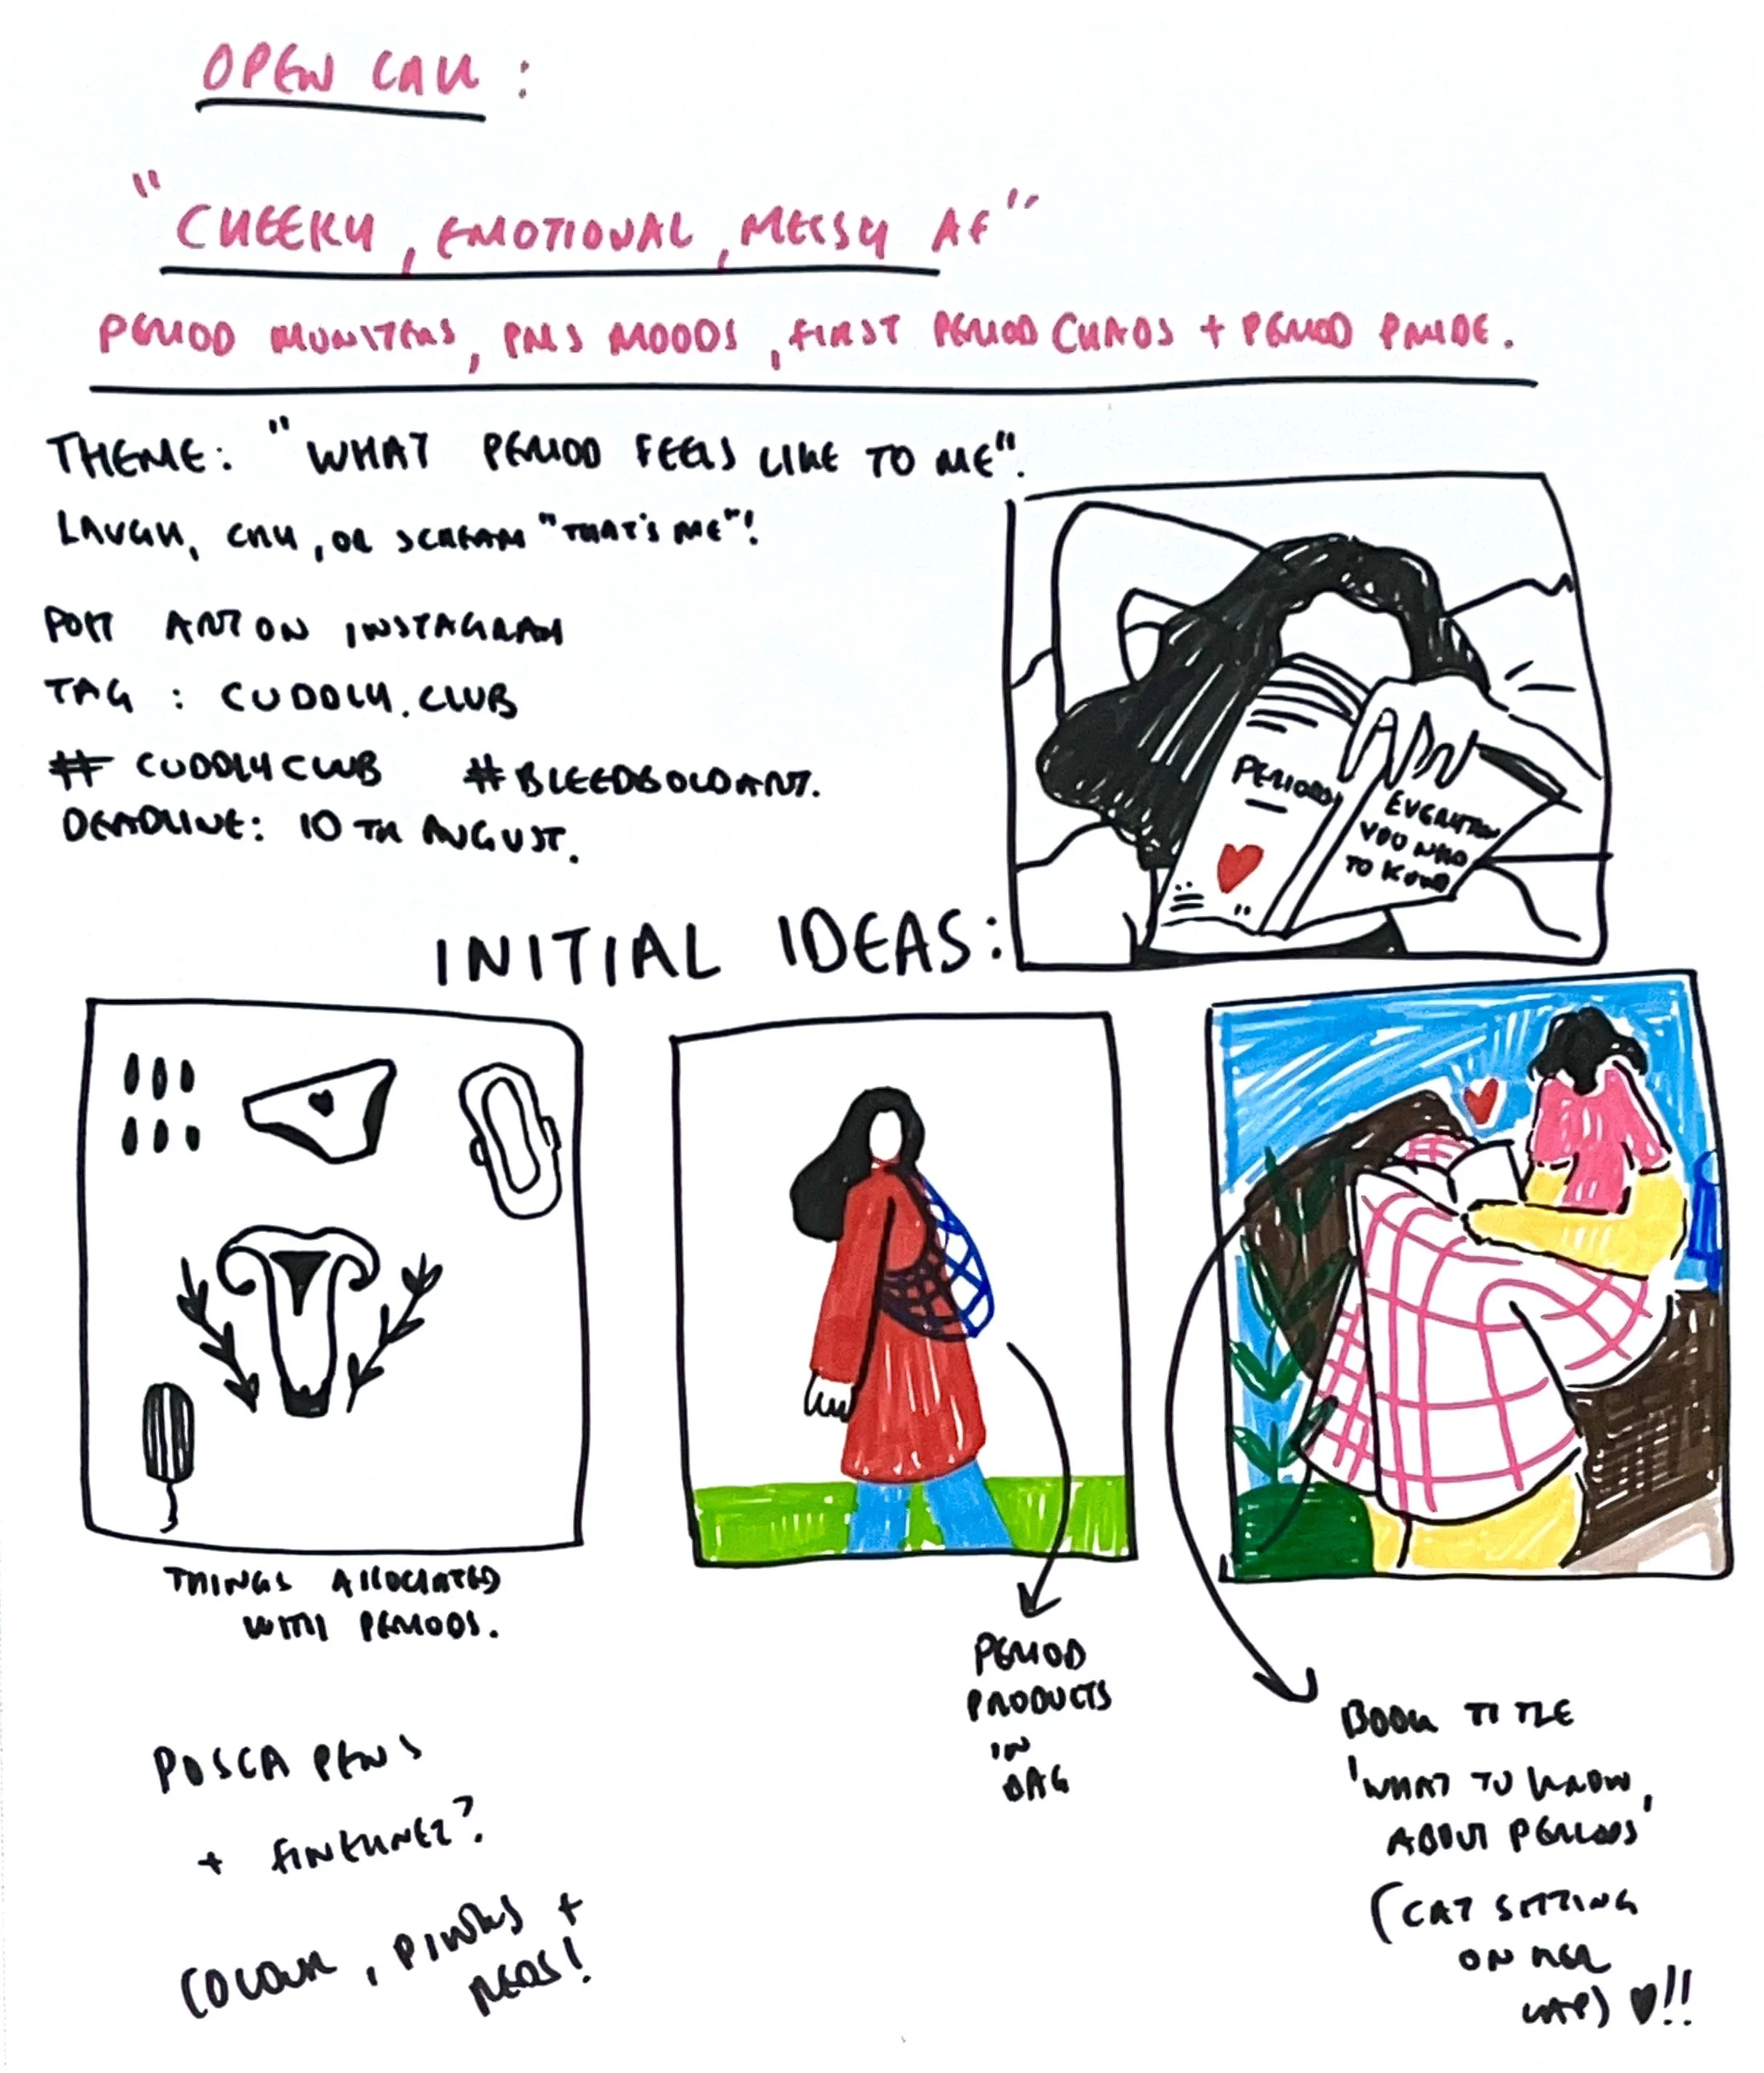 OPEN CALL :
"CHEEKY, EMOTIONAL, MESSY AF"
PERIOD MONSTERS, PMS MOODS, FIRST PERIOD CHAOS + PERIOD PRIDE.
THEME: "WHAT PERIOD FEELS LIKE TO ME".
LAUGH, CRY, OR SCREAM "THAT'S ME"!
POST ART ON INSTAGRAM
TAG : CUDDLY.CLUB
# CUDDLYCLUB #BLEEDBOLDART.
DEADLINE: 10TH AUGUST.
PERIODS
EVERYTHING
YOU NEED
TO KNOW
INITIAL IDEAS:
THINGS ASSOCIATED
WITH PERIODS.
PERIOD
PRODUCTS
IN
BAG
BOOK TITLE
'WHAT TO KNOW
ABOUT PERIODS'
(CAT SITTING
ON HER
LAP) ♥!!
POSCA PENS
+ FINELINER?
COLOUR, PINKS +
REDS!